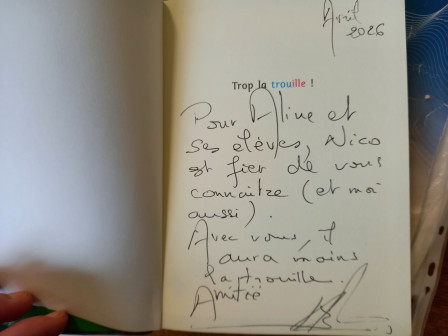 Avril
2026
Trop la trouille !
Pour Aline et
ses elèves, Nico
est fier de vous
connaitre (et moi
aussi).
Avec vous, il
aura moins
la trouille.
Amitié